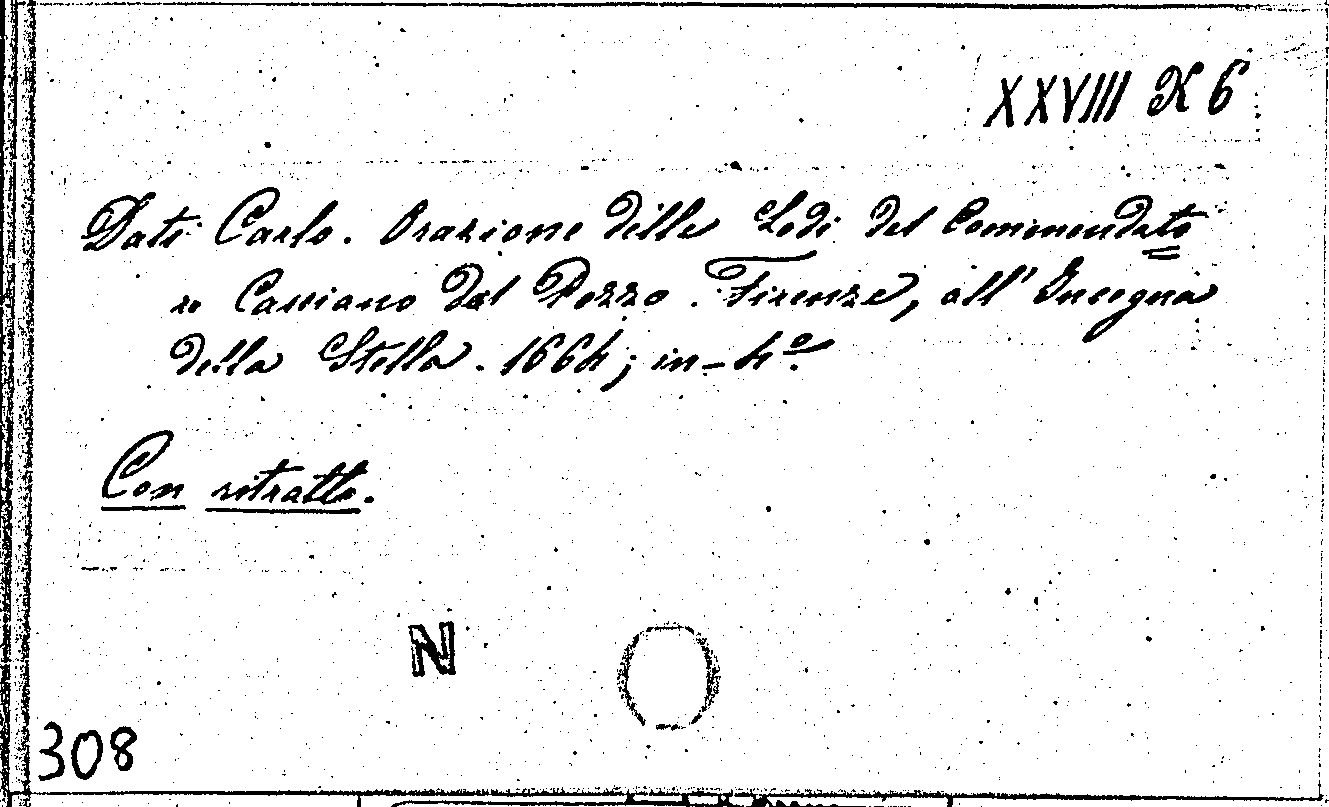 XXVIII K 6
Dati Carlo. Orazione delle Lodi del Commendato=
re Cassiano dal Pozzo. Firenze, all'Insegna
della Stella. 1664; in-4º.
Con ritratto.
N
308